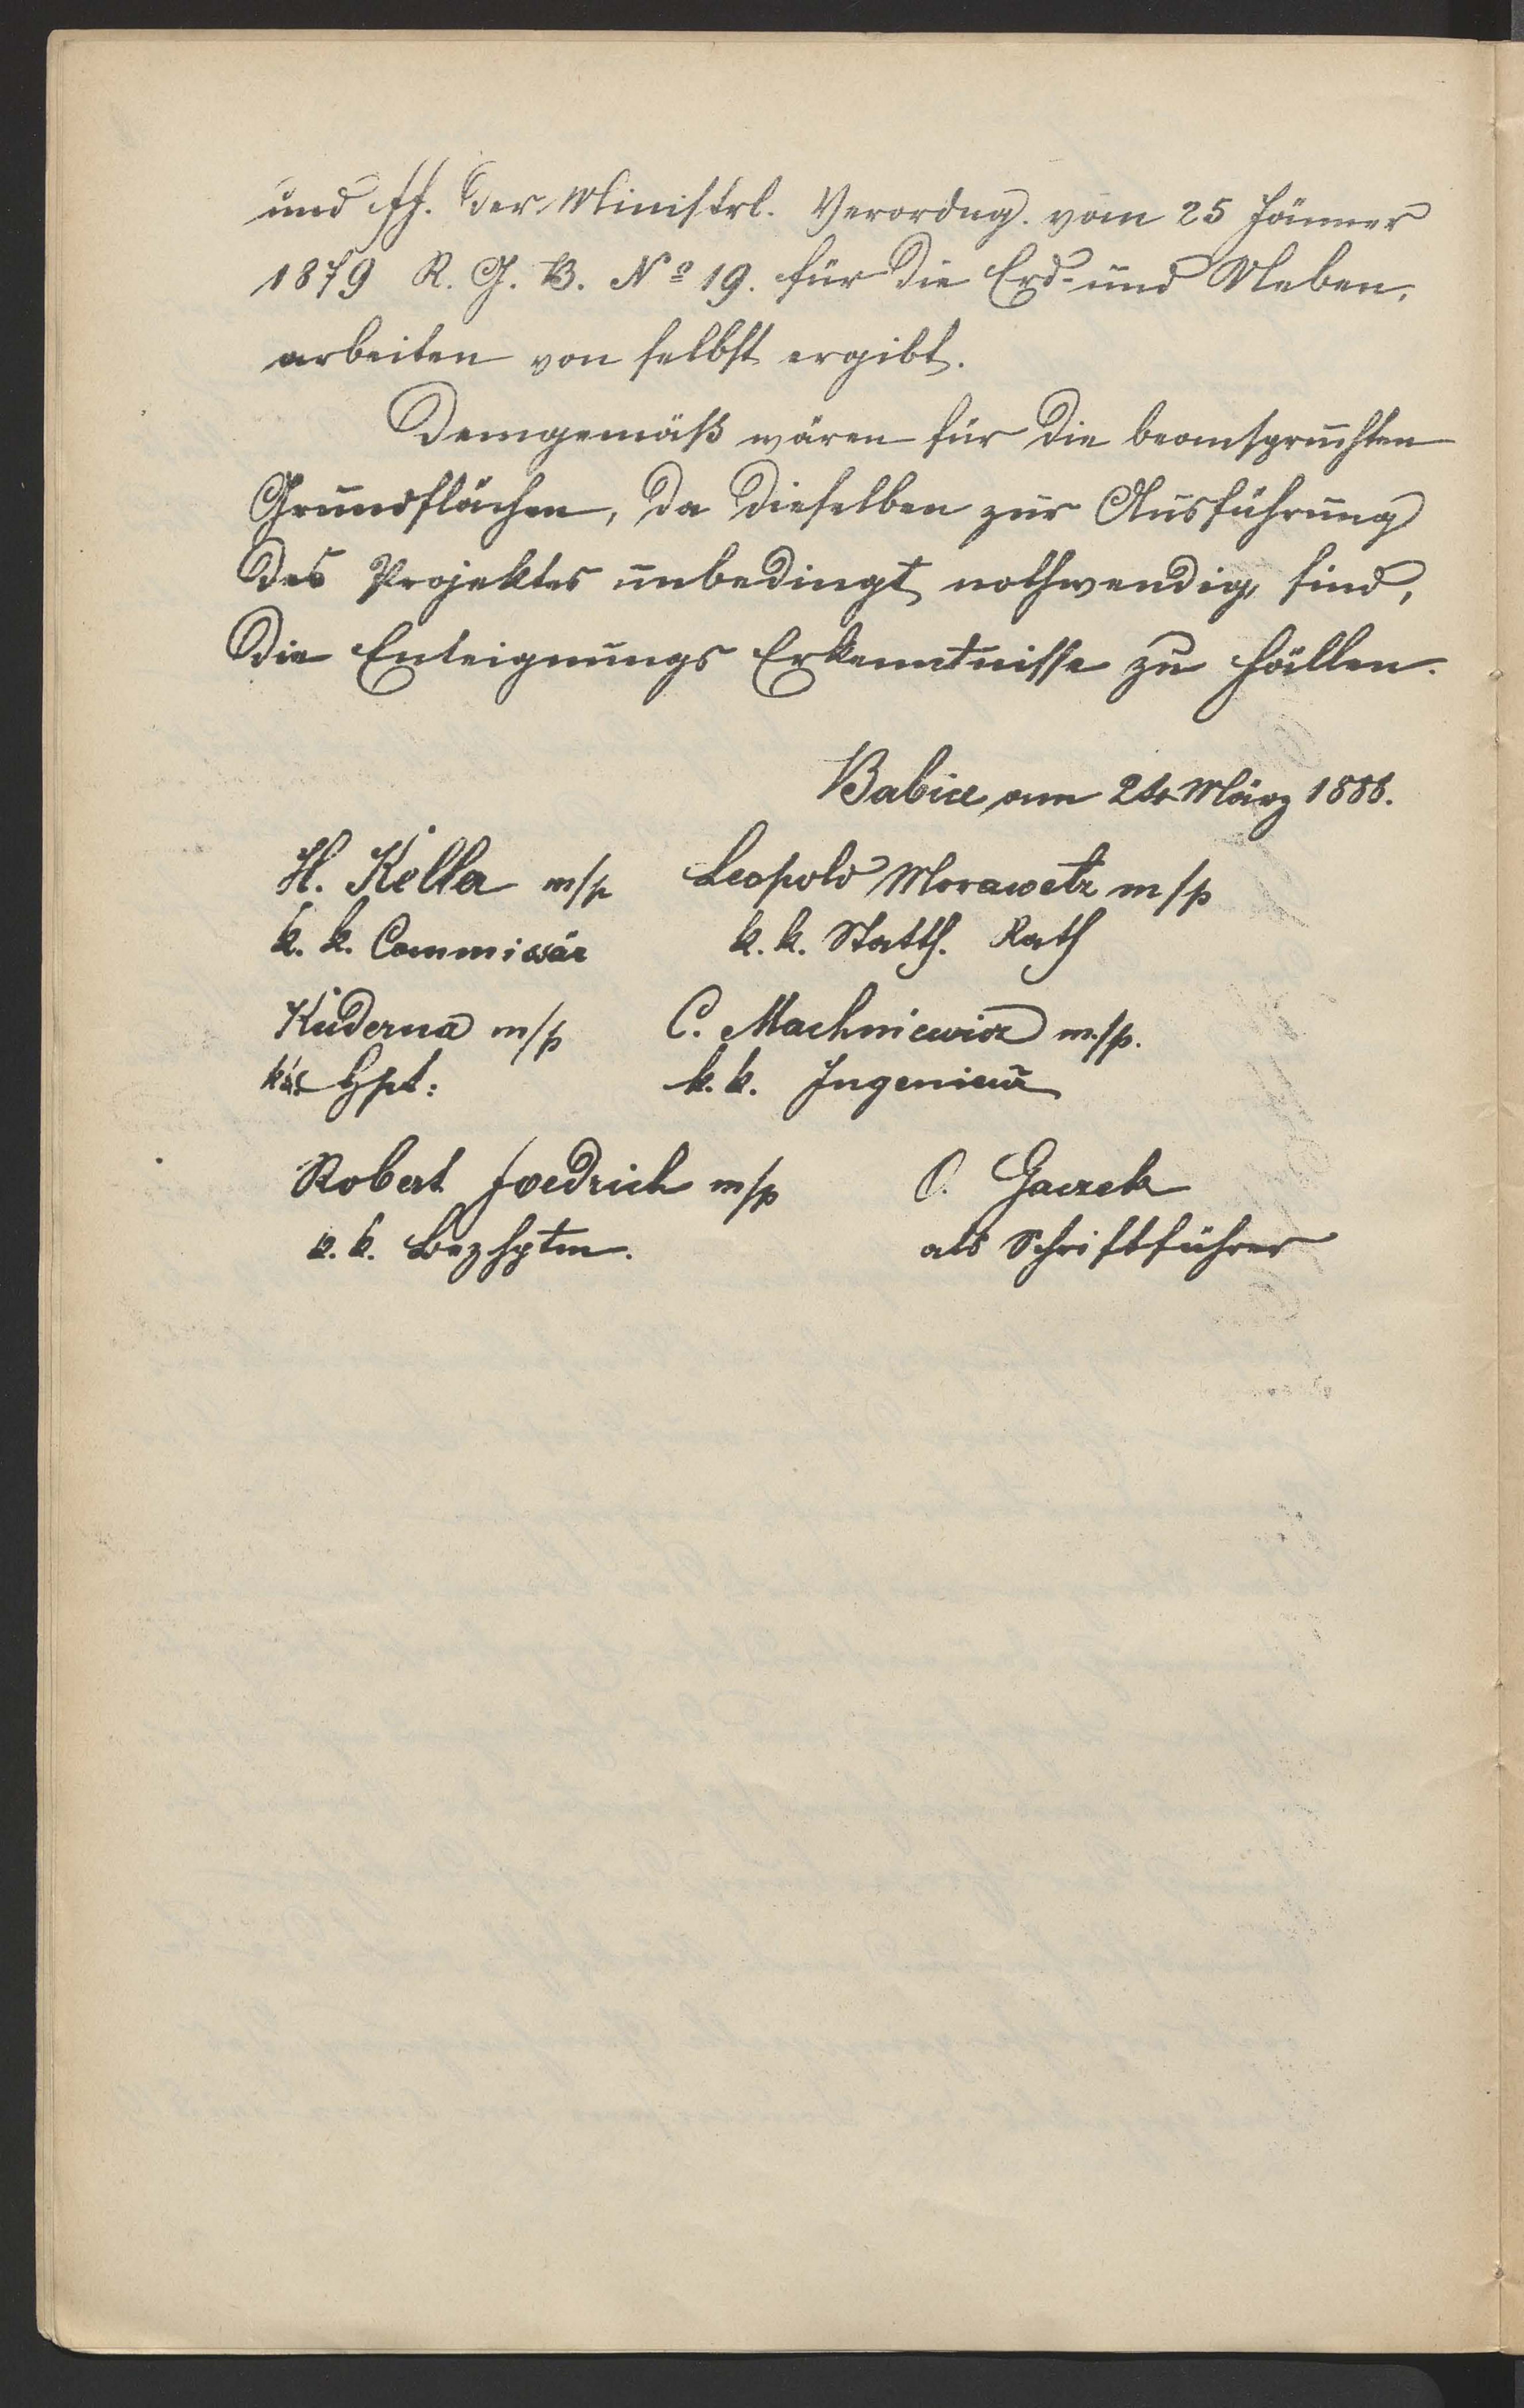 und ff. der Ministrl. Verordng. vom 25 Jänner
1879 R. G. B. Nº 19. für die Erd- und Neben-
arbeiten von selbst ergibt.
Demgemäß wären für die beanspruchten
Grundflächen, da dieselben zur Ausführung
des Projektes unbedingt nothwendig sind,
die Enteignungs Erkenntnisse zu fällen.
Babice am 24 März 1888.
H. Keller m/p Leopold Morawetz m/p
k. k. Commissär k. k. Statth. Rath
Kuderna m/p C. Machniewicz m/p.
Hpt: k. k. Ingenieur
Robert Foedrich m/p O. Gaczek
k. k. Bezhptm. als Schriftführer